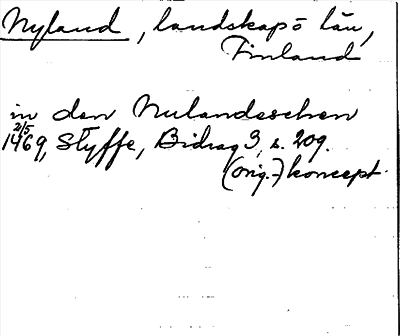 Nyland, landskap o län,
Finland
in den Nulandeschen
2/5
1469, Styffe, Bidrag 3, s. 209.
(orig.-) koncept.